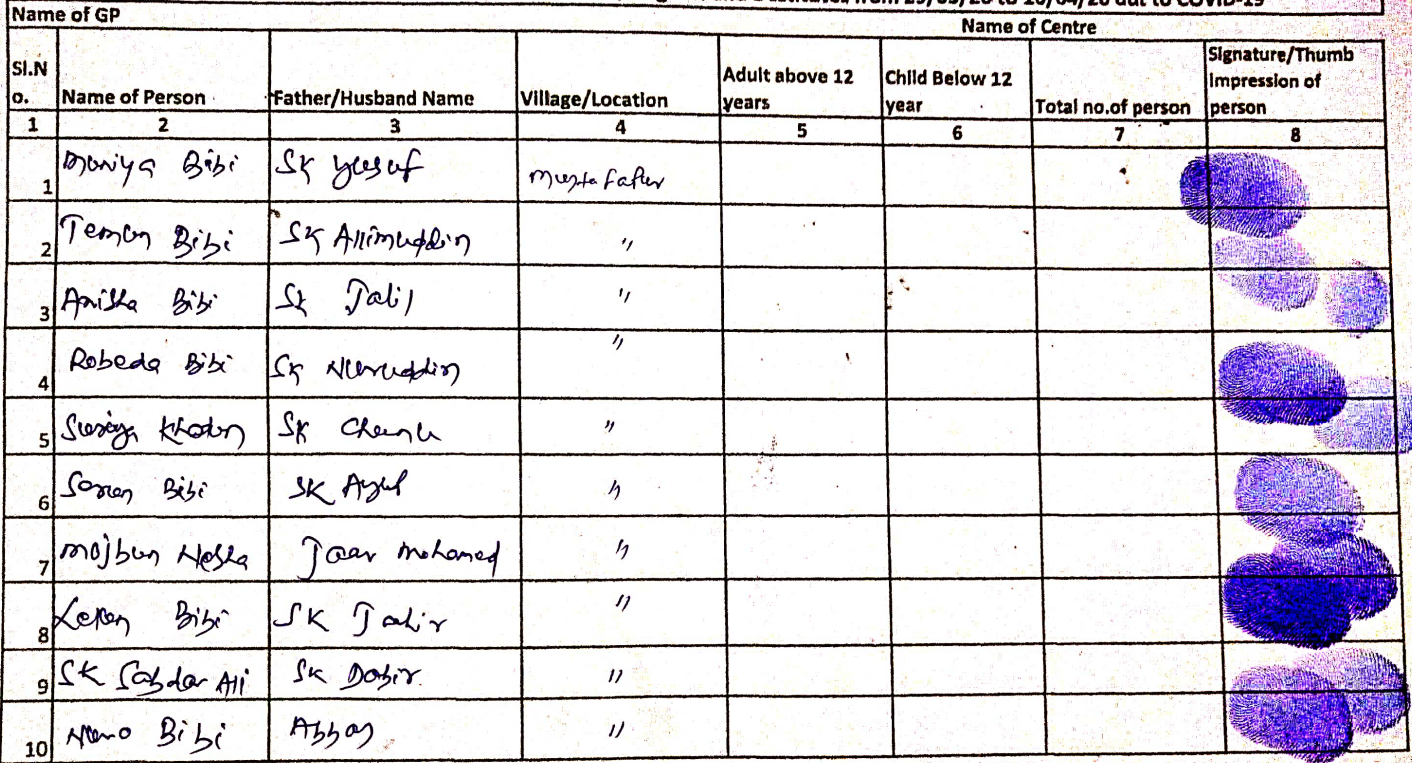 from 29/03/20 to 16/04/20 dut to COVID-19
Name of GP Name of Centre
Sl.N
o. Name of Person Father/Husband Name Village/Location Adult above 12
years Child Below 12
year Total no.of person Signature/Thumb
Impression of
person
1 2 3 4 5 6 7 8
1 Moniya Bibi SK Yusuf
2 Bibi SK Alimuddin "
3 Anisha Bibi SK Jalil "
4 Robeda Bibi SK Nuruddin "
5 Suraiya Khatun SK "
6 Bibi SK Ayub "
7 Mojbun Nesha Mohamed "
8 Bibi SK "
9 SK Sabdar Ali SK Dabir "
10 Bibi Abbas "